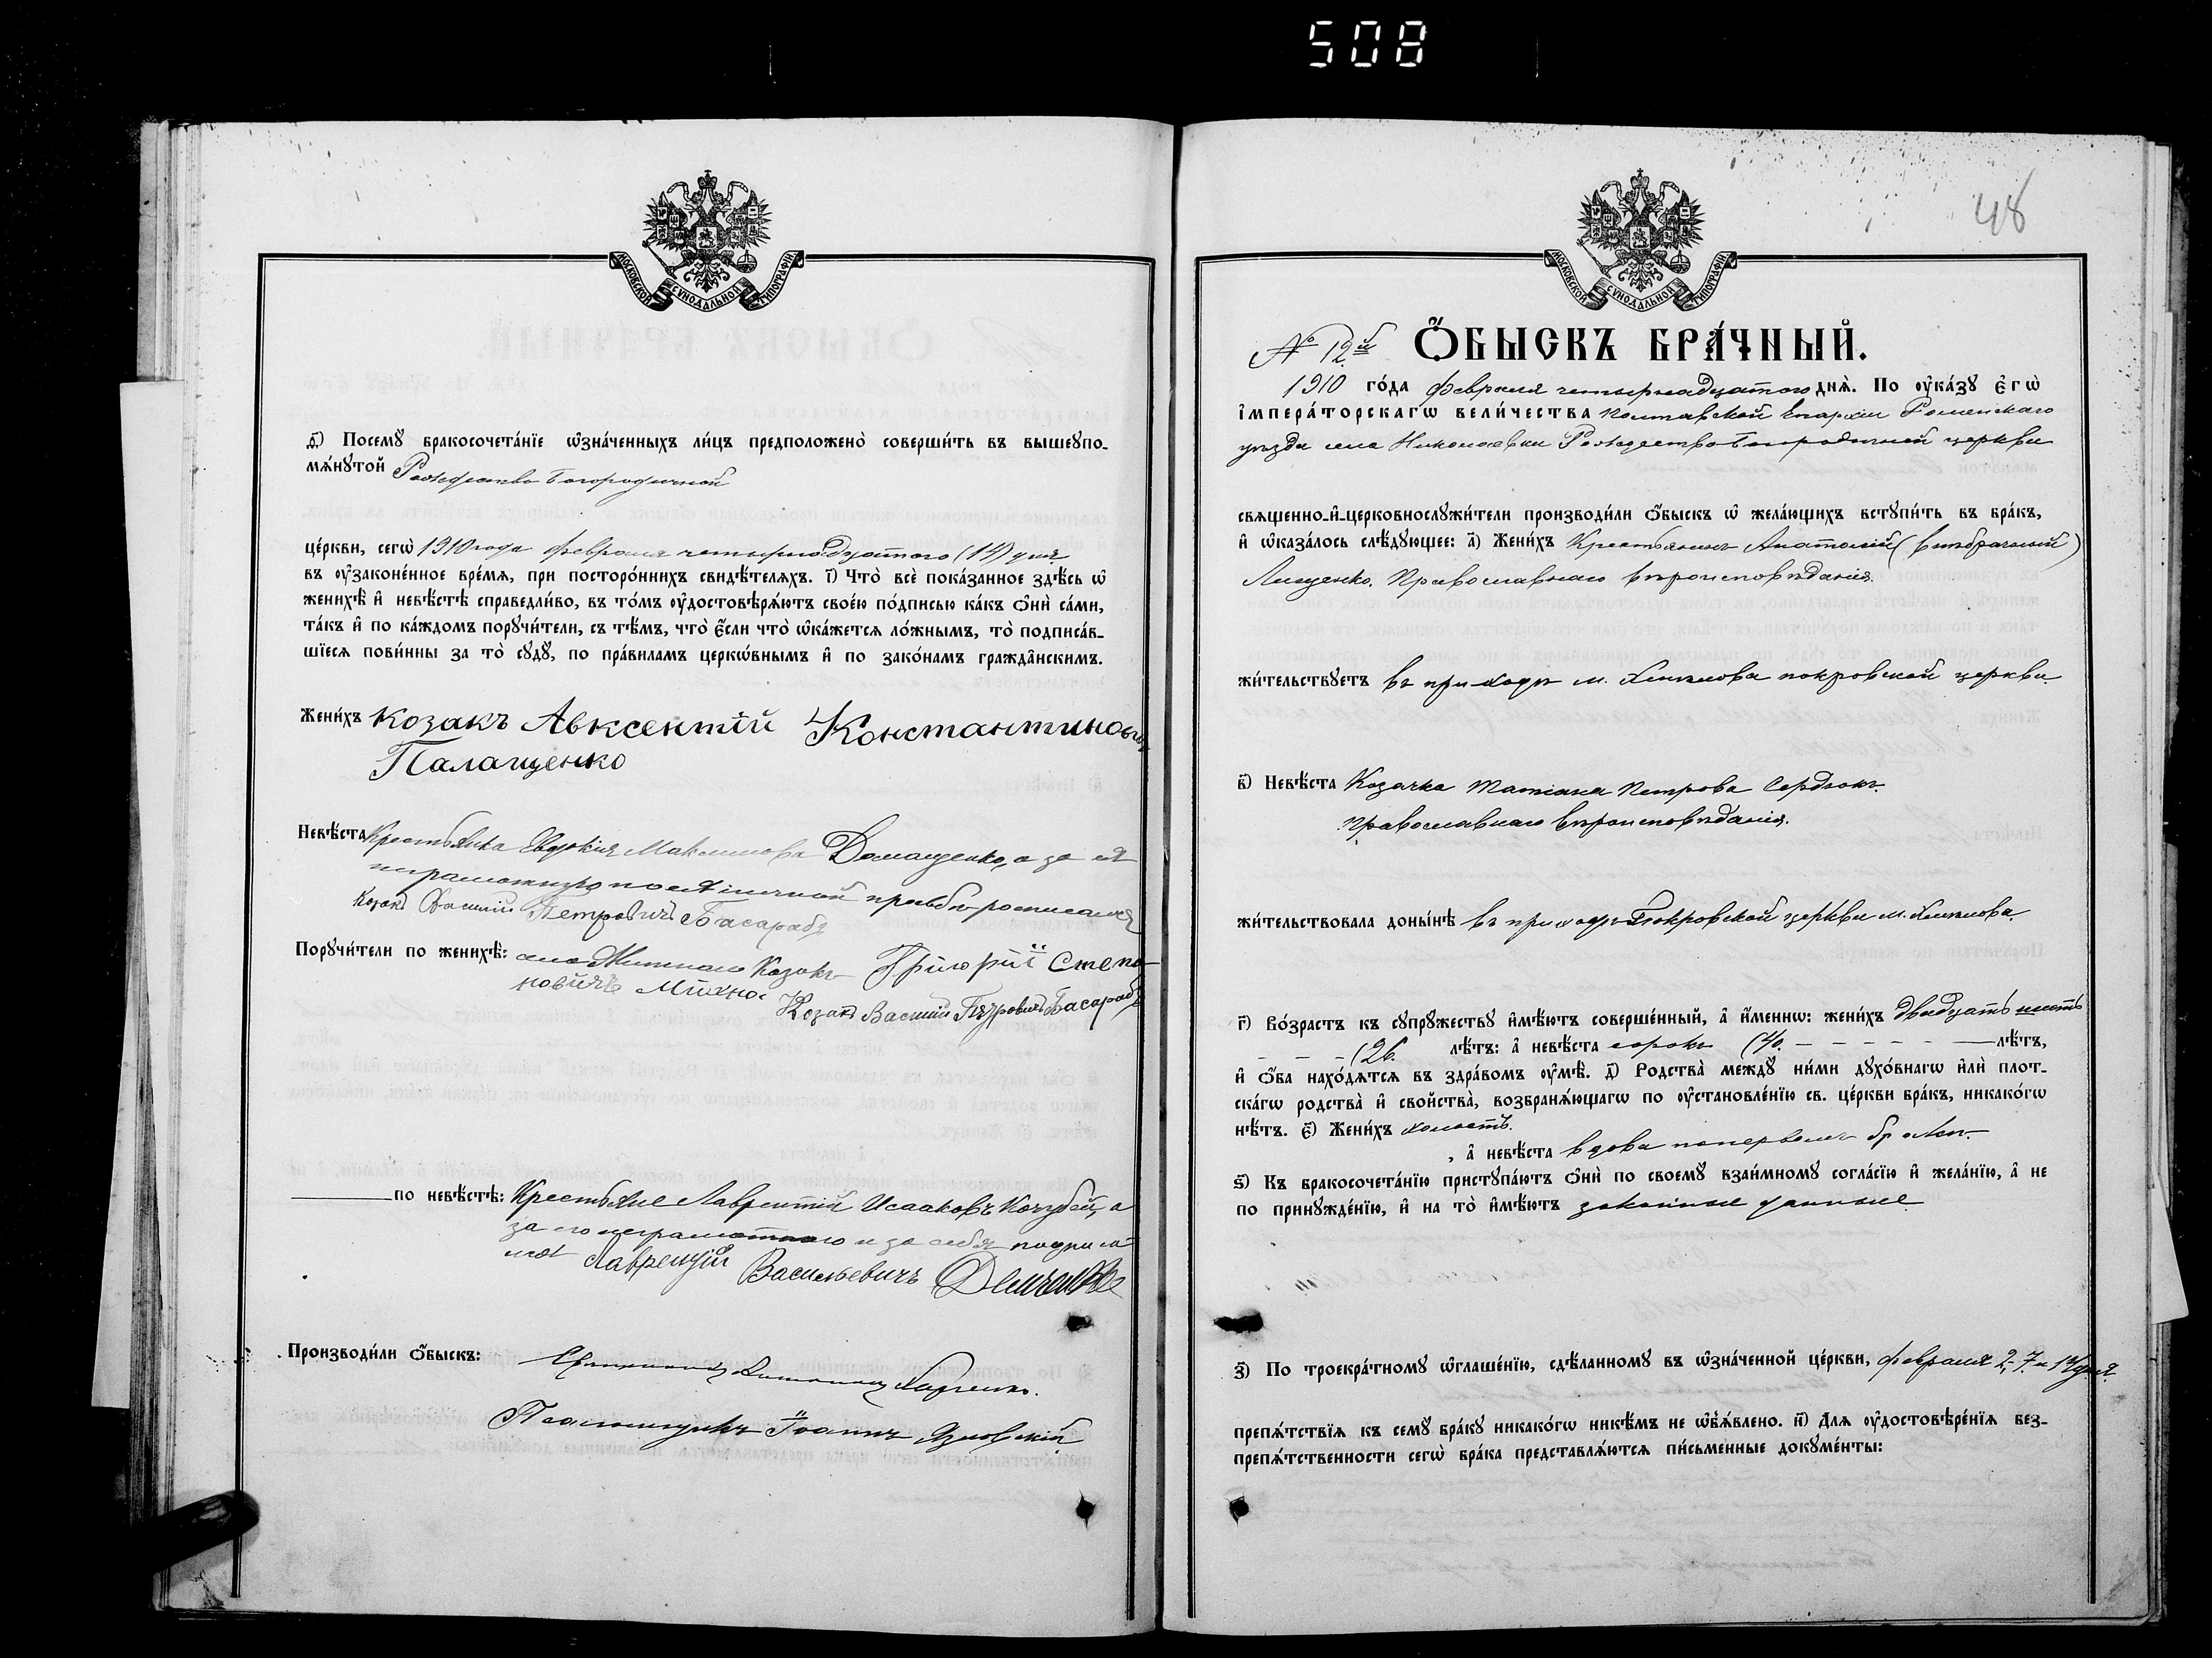 508
МОСКОВСКОЙ СѴНОДАЛЬНОЙ ТИПОГРАФІИ
ѳ҃) Посемꙋ̀ бракосочета́нїе ѡ҆зна́ченныхъ ли́цъ предположено̀ соверши́ть въ вышеꙋпо-
мѧ́нꙋтой Рождество Богородичной
це́ркви, сегѡ̀ 1910 года февраля четырнадцатого (14) дня
въ ᲂу҆законе́нное вре́мѧ, при посторо́ннихъ свидѣ́телѧхъ. і҃) Что̀ всѐ пока́занное здѣ́сь ѡ҆
женихѣ̀ и҆ невѣ́стѣ справедли́во, въ то́мъ ᲂу҆достовѣрѧ́ютъ свое́ю по́дписью ка́къ ѻ҆нѝ са́ми,
та́къ и҆ по ка́ждомъ порꙋчи́тели, съ тѣ́мъ, что̀ є҆́сли что̀ ѡ҆ка́жетсѧ ло́жнымъ, то̀ подписа́в-
шїесѧ пови́нны за то̀ сꙋдꙋ̀, по пра́виламъ церко́внымъ и҆ по зако́намъ гражда́нскимъ.
Жени́хъ Козакъ Авксентій Константиновъ
Палащенко
Невѣ́ста Крестьянка Евдокія Максимова Домащенко, а за ея
неграмотную по ея личной просьбѣ росписался
Козакъ Василій Петровичъ Басарабъ
Порꙋчи́тели по женихѣ̀: села Козакъ Григорій Степа-
новичъ Михно.
Козакъ Василій Петровичъ Басарабъ
по невѣ́стѣ: Крестьяне Лаврентій Исааковъ Кочубей, а
за его неграмотного и за себя подписа-
лся Лаврентій Васильевичъ Демченко
Производи́ли ѻ҆́быскъ: Священникъ
Псаломщикъ Іоаннъ
48
МОСКОВСКОЙ СѴНОДАЛЬНОЙ ТИПОГРАФІИ
№ 12й Ѻ҆́БЫСКЪ БРА́ЧНЫЙ.
1910 го́да февраля четырнадцатого днѧ̀. По ᲂу҆ка́зꙋ є҆гѡ̀
і҆мпера́торскагѡ вели́чества Полтавской Епархіи Роменскаго
уѣзда села Николаевки Рождество Богородичной церкви
свѧщенно-и҆-церковнослꙋжи́тели производи́ли ѻ҆́быскъ ѡ҆ жела́ющихъ встꙋпи́ть въ бра́къ,
и҆ ѡ҆каза́лось слѣ́дꙋющее: а҃) Жени́хъ Крестьянинъ Анатолій (внѣбрачный)
Лищенко. Православнаго вѣроисповѣданія.
жи́тельствꙋетъ въ приходѣ м. Хмѣлова покровской церкви.
в҃) Невѣ́ста Козачка Татіана Петрова Сердюкъ.
православнаго вѣроисповѣданія.
жи́тельствовала доны́нѣ въ приходѣ Покровской церкви м. Хмѣлова.
г҃) Во́зрастъ къ сꙋпрꙋ́жествꙋ и҆мѣ́ютъ соверше́нный, а҆ и҆́меннѡ: жени́хъ двадцать шесть
(26. лѣ́тъ: а҆ невѣ́ста сорокъ (40. лѣ́тъ,
и҆ ѻ҆́ба нахо́дѧтсѧ въ здра́вомъ ᲂу҆мѣ̀. д҃) Родства̀ междꙋ̀ ни́ми дꙋхо́внагѡ и҆лѝ плот-
ска́гѡ родства̀ и҆ свойства̀, возбранѧ́ющагѡ по ᲂу҆становле́нїю св. це́ркви бра́къ, никако́гѡ
нѣ́тъ. є҃) Жени́хъ холостъ.
, а҆ невѣ́ста вдова по первомъ бракѣ.
ѕ҃) Къ бракосочета́нїю пристꙋпа́ютъ ѻ҆нѝ по своемꙋ̀ взаи́мномꙋ согла́сїю и҆ жела́нїю, а҆ не
по принꙋжде́нїю, и҆ на то̀ и҆мѣ́ютъ законные данные
з҃) По троекра́тномꙋ ѡ҆глаше́нїю, сдѣ́ланномꙋ въ ѡ҆зна́ченной це́ркви, февраля 2, 7 и
препѧ́тствїѧ къ семꙋ̀ бра́кꙋ никако́гѡ никѣ́мъ не ѡ҆б̾ѧ́влено. и҃) Длѧ ᲂу҆достовѣре́нїѧ без-
препѧ́тственности сегѡ̀ бра́ка представлѧ́ютсѧ пи́сьменные докꙋме́нты: